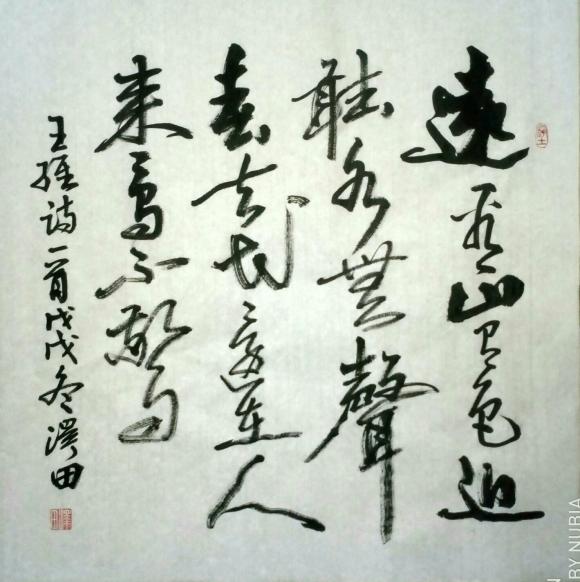 遠看山有色近
聽水無聲
春去花還在人
來鳥不驚
王維詩一首戊戌冬溪田
BY NUBIA